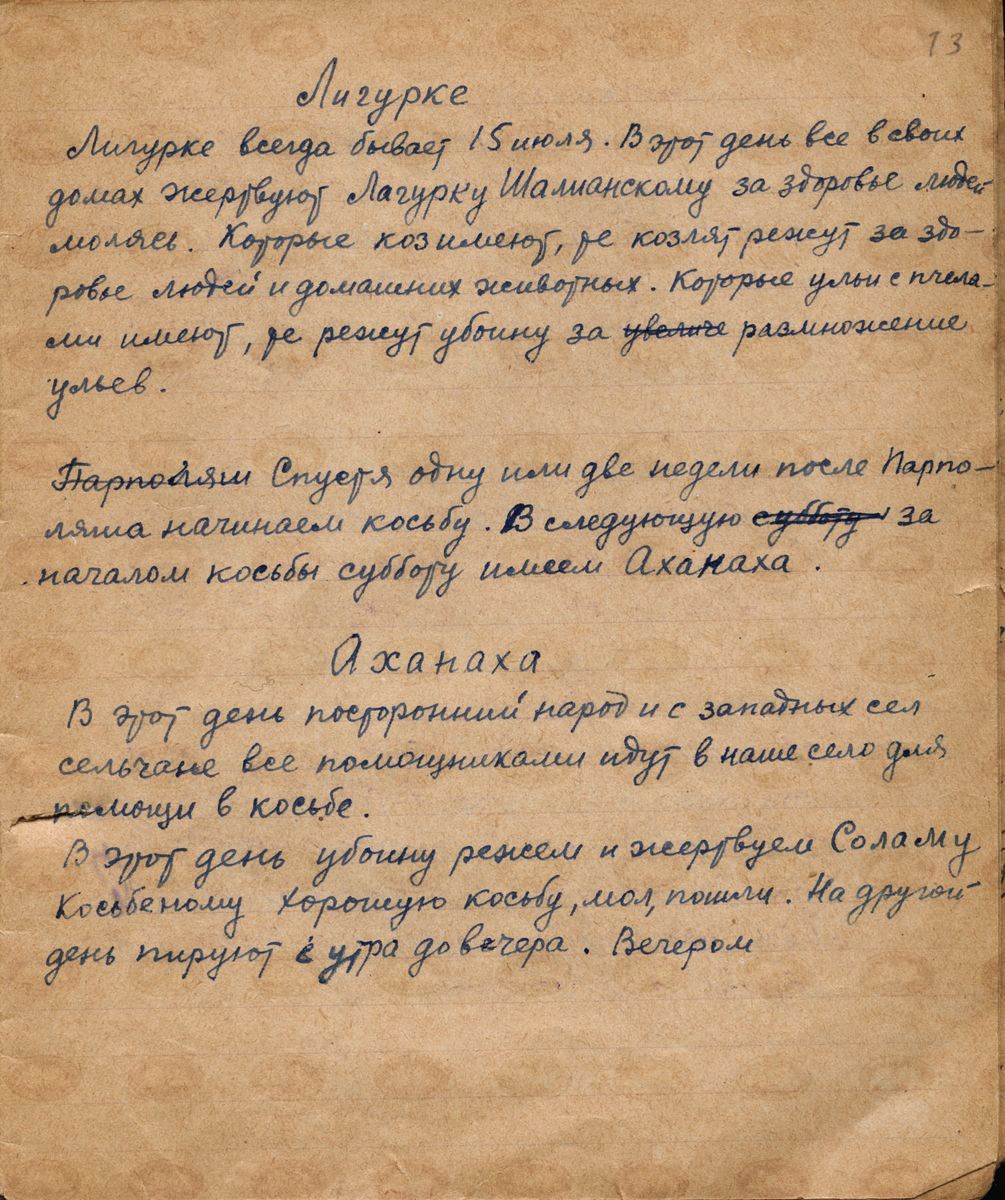 13
Лигурке
Лигурке всегда бывает 15 июля. В этот день все в своих
домах жертвуют Лагурку Шалианскому за здоровье людей
молясь. Которые коз имеют, те козлят режут за здо-
ровье людей и домашних животных. Которые ульи с пчела-
ми имеют, те режут убоину за увеличе размножение
ульев.
Парполяш Спустя одну или две недели после Парпо-
ляша начинаем косьбу. В следующую субботу за
началом косьбы субботу имеем Аханаха.
Аханаха
В этот день посторонний народ и с западных сел
сельчане все помощниками идут в наше село для
помощи в косьбе.
В этот день убоину режем и жертвуем Соламу
Косьбеному Хорошую косьбу, мол, пошли. На другой
день пируют с утра до вечера. Вечером